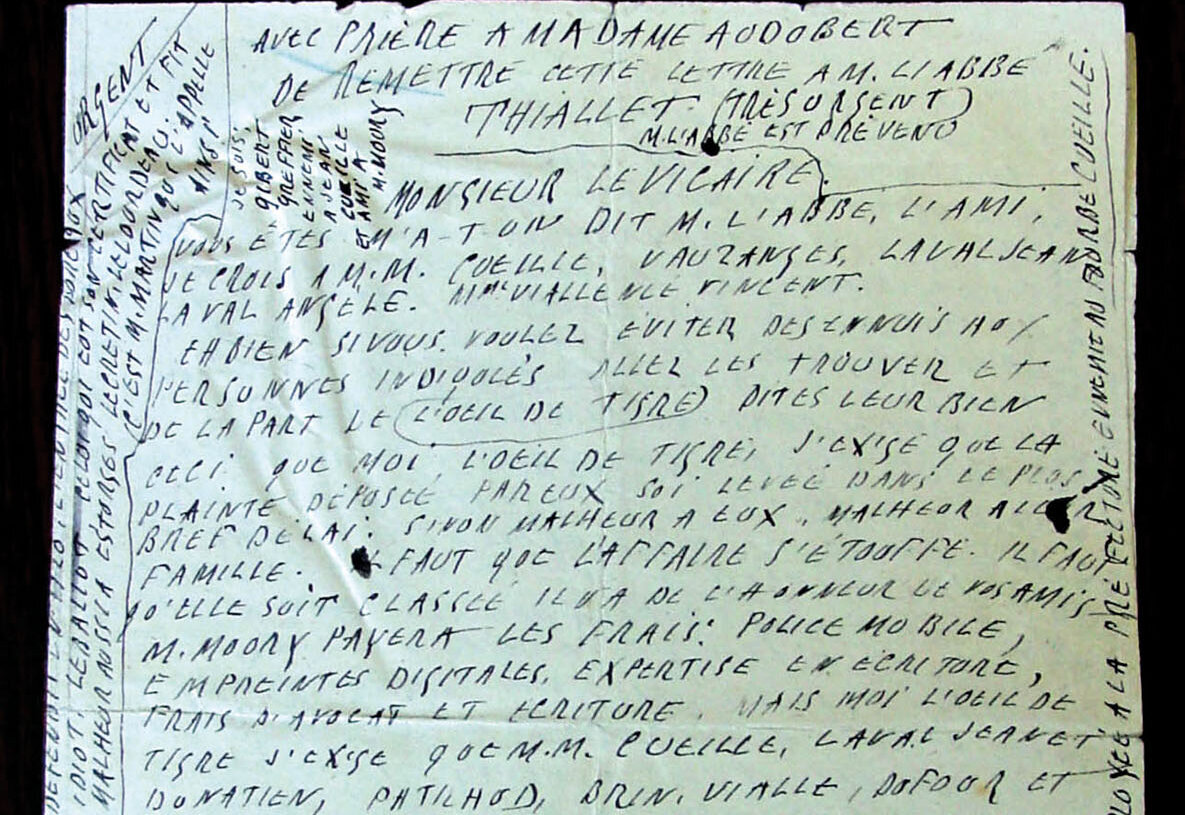 AVEC PRIÈRE A MADAME AUDUBERT
DE REMETTRE CETTE LETTRE A M. L'ABBE
THIALLET. (TRÈS URGENT)
M. L'ABBÉ EST PREVENU
MONSIEUR LE VICAIRE.
VOUS ÊTES M'A-T ON DIT M. L'ABBE, L'AMI,
JE CROIS A M.M. CUEILLE, VAUZANGES, LAVAL JEAN
LAVAL ANGELE. MME VIALLE NEE VINCENT.
EH BIEN SI VOUS VOULEZ ÉVITER DES ENNUIS AUX
PERSONNES INDIQUÉS ALLEZ LES TROUVER ET
DE LA PART LE (L'OEIL DE TIGRE) DITES LEUR BIEN
CECI: QUE MOI L'OEIL DE TIGRE, J'EXIGE QUE LA
PLAINTE DÉPOSÉE PAR EUX SOI LEVÉE DANS LE PLUS
BREF DELAI: SINON MALHEUR A EUX. MALHEUR A LEUR
FAMILLE. IL FAUT QUE L'AFFAIRE S'ÉTOUFFE. IL FAUT
QU'ELLE SOIT CLASSÉE IL Y A DE L'HONNEUR DE VOS AMIS
M. MOURY PAYERA LES FRAIS: POLICE MOBILE,
EMPREINTES DIGITALES, EXPERTISE EN ÉCRITURE,
FRAIS D'AVOCAT ET ECRITURE. MAIS MOI L'OEIL DE
TIGRE J'EXIGE QUE M.M. CUEILLE, LAVAL JEAN ET
DONATIEN, PATILHOU, BRIN, VIALLE, DUFOUR ET
URGENT
JE SUIS,
GILBERT
GREFFIER
ENNEMI
A JEAN
CUEILLE
ET AMI A
M. MOURY
AINSI
C'EST M. MARTIN QUI L'APPELLE
MALHEUR AUSSI A ESTORGES LE CRETIN, LE LOURDEAU.
IDIOT, LE BALLOT CELUI QUI EUT SON CERTIFICAT ET FIT
DES BUREAUX
EMPLOYÉE A LA PRÉFECTURE EUNEMIT AU FOURBE CUEILLE.